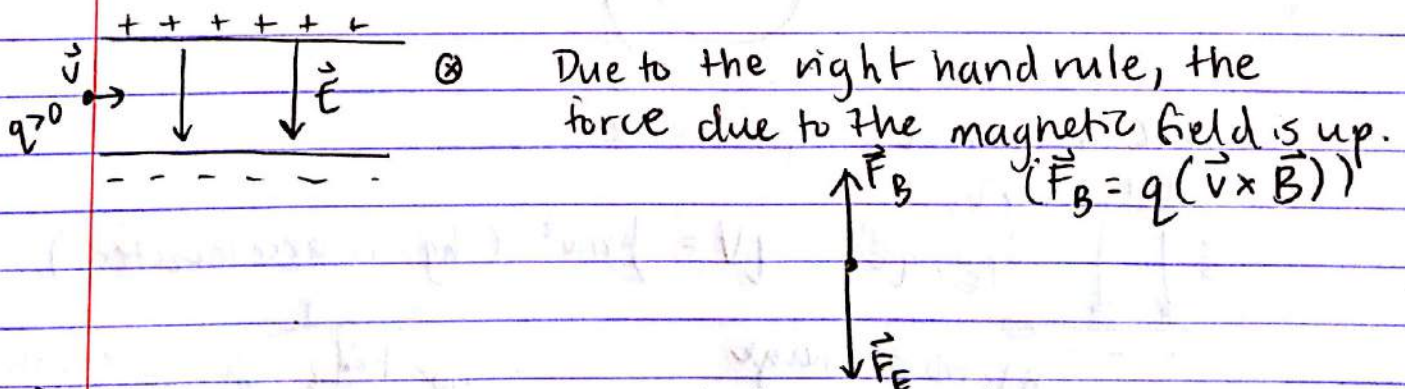 + + + + + +
v⃗
q>0
E⃗
⊗
Due to the right hand rule, the
force due to the magnetic field is up.
F⃗_B
(F⃗_B = q(v⃗ × B⃗))
- - - - - -
F⃗_E